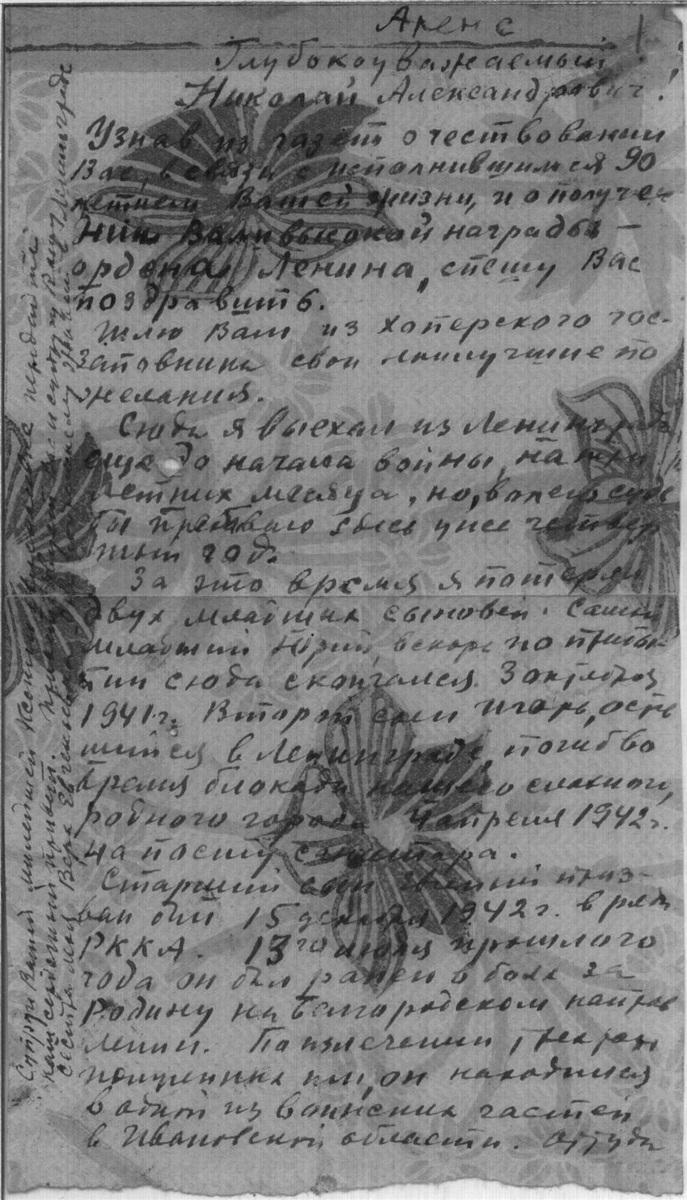 Аренс
1
Глубокоуважаемый
Николай Александрович!
Узнав из газет о чествовании
Вас, в связи с исполнившимся 90
летием Вашей жизни, и о получе-
нии Вами высокой награды –
ордена Ленина, спешу Вас
поздравить.
Шлю Вам из Хоперского гос-
заповедника свои наилучшие по
желания.
Сюда я выехал из Ленинграда
еще до начала войны, на три
летних месяца, но, волею судь
бы пребываю здесь уже четвер
тый год.
За это время я потерял
двух младших сыновей. Самый
младший Юрий, вскоре по прибы-
тии сюда скончался 3 октября
1941 г. Второй сын Игорь, остав
шийся в Ленинграде, погиб во
время блокады нашего славного,
родного города 4 апреля 1942 г.
на посту
Старший сын Евгений приз-
ван был 15 декабря 1942 г. в ряды
РККА. 13го июля прошлого
года он был ранен в боях за
Родину на Белгородском направ
лении. По излечении, ран
полученных им, он находился
в одной из воинских частей
в Ивановской области. Оттуда
Супруге Вашей милейшей Ксении передайте
наш сердечный привет.
сестра моя Вера Евгеньевна